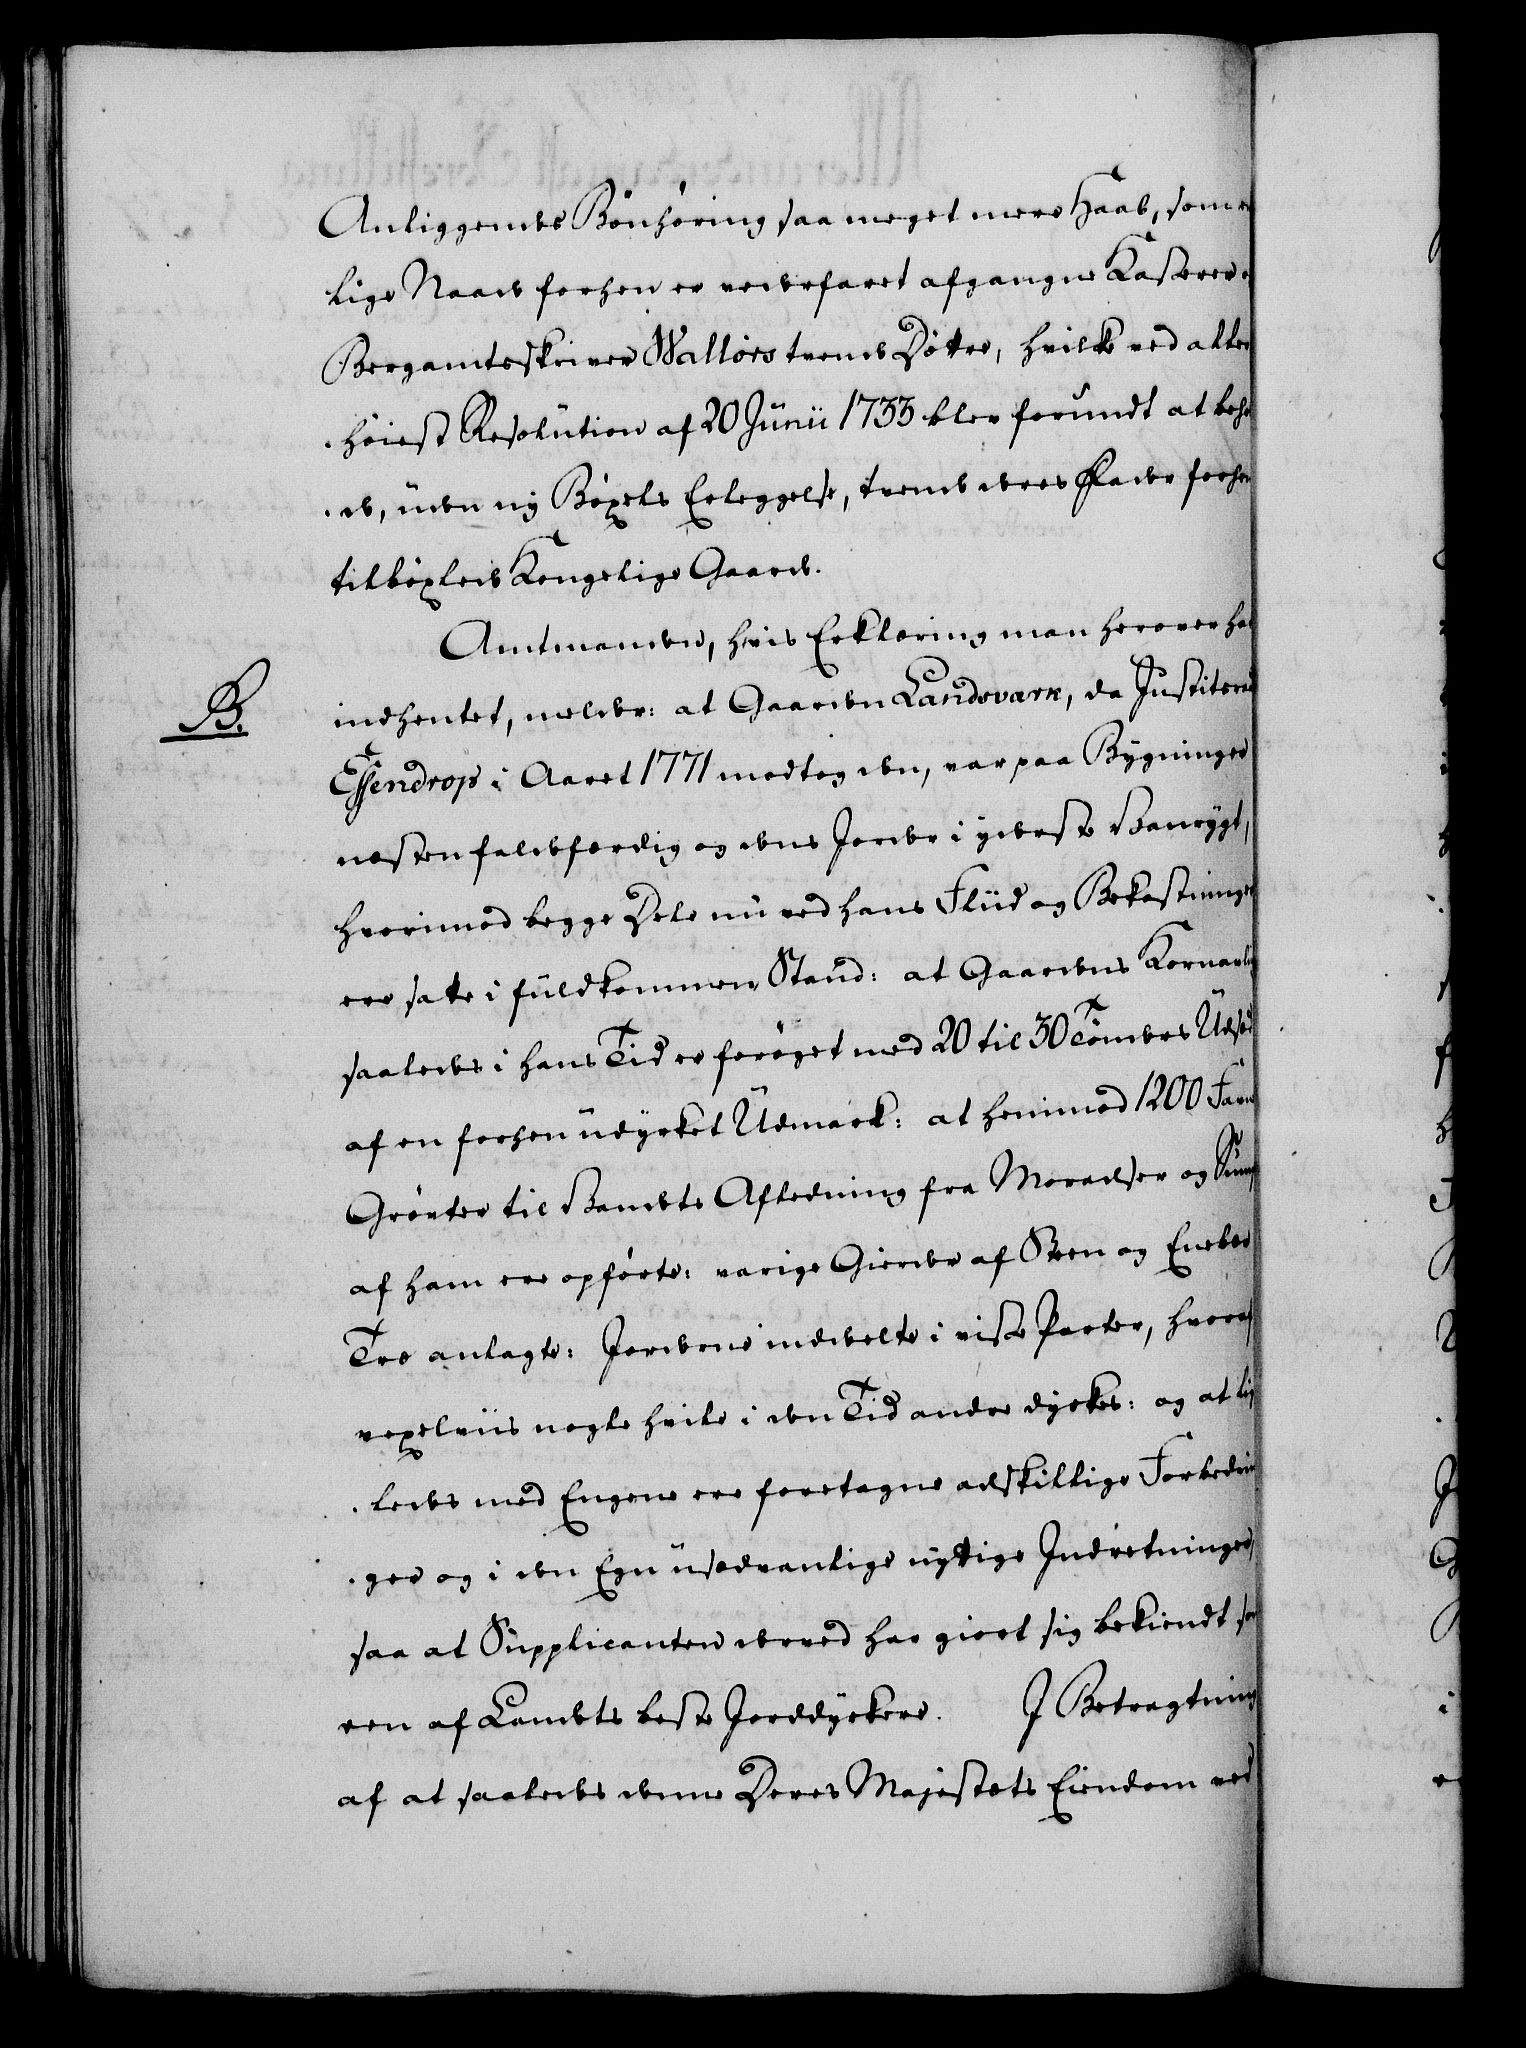 Anliggendes Bönhøring saa meget mere Haab, som en
lige Naade forhen er vederfaret afgangne Kaserer
Bergamtsskriver Walløes tvende Døttre, hvilke ved aller
høiest Resolution af 20 Junii 1733 blev forundt at behol
de, uden ny Bøxels Erleggelse, tvende deres Fader forhen
tilbøxlede Kongelige Gaarde.
Amtmanden, hvis Erklæring man herover har
B.
indhentet, melder: at Gaarden Landsværk, da Justitsraad
Essendrop i Aaret 1771 modtog den, var paa Bygninger
næsten faldefærdig og dens Jorder i yderste Vanrygt,
hvorimod begge Dele nu ved hans Fliid og Bekostninger
ere satte i fuldkommen Stand: at Gaardens Kornavling
saaledes i hans Tid er forøget med 20 til 30 Tønders Udsæd
af en forhen udyrket Udmark: at henimod 1200 Favne
Grøvter til Vandets Afledning fra Moradser og Sump
af ham ere opførte: varige Gierder af Steen og Eneber
Træ anlagte: Jorderne inddeelte i visse Parter, hvoraf
vexelviis nogle hvile i den Tid andre dyrkes: og at lige
ledes med Engene ere foretagne adskillige Forbedrin
ger og i den Egn usædvanlige nyttige Indretninger,
saa at Supplicanten derved har giort sig bekiendt som
een af Landets beste Jorddyrkere. I Betragtning
af at saaledes denne Deres Majestæts Eiendom ved